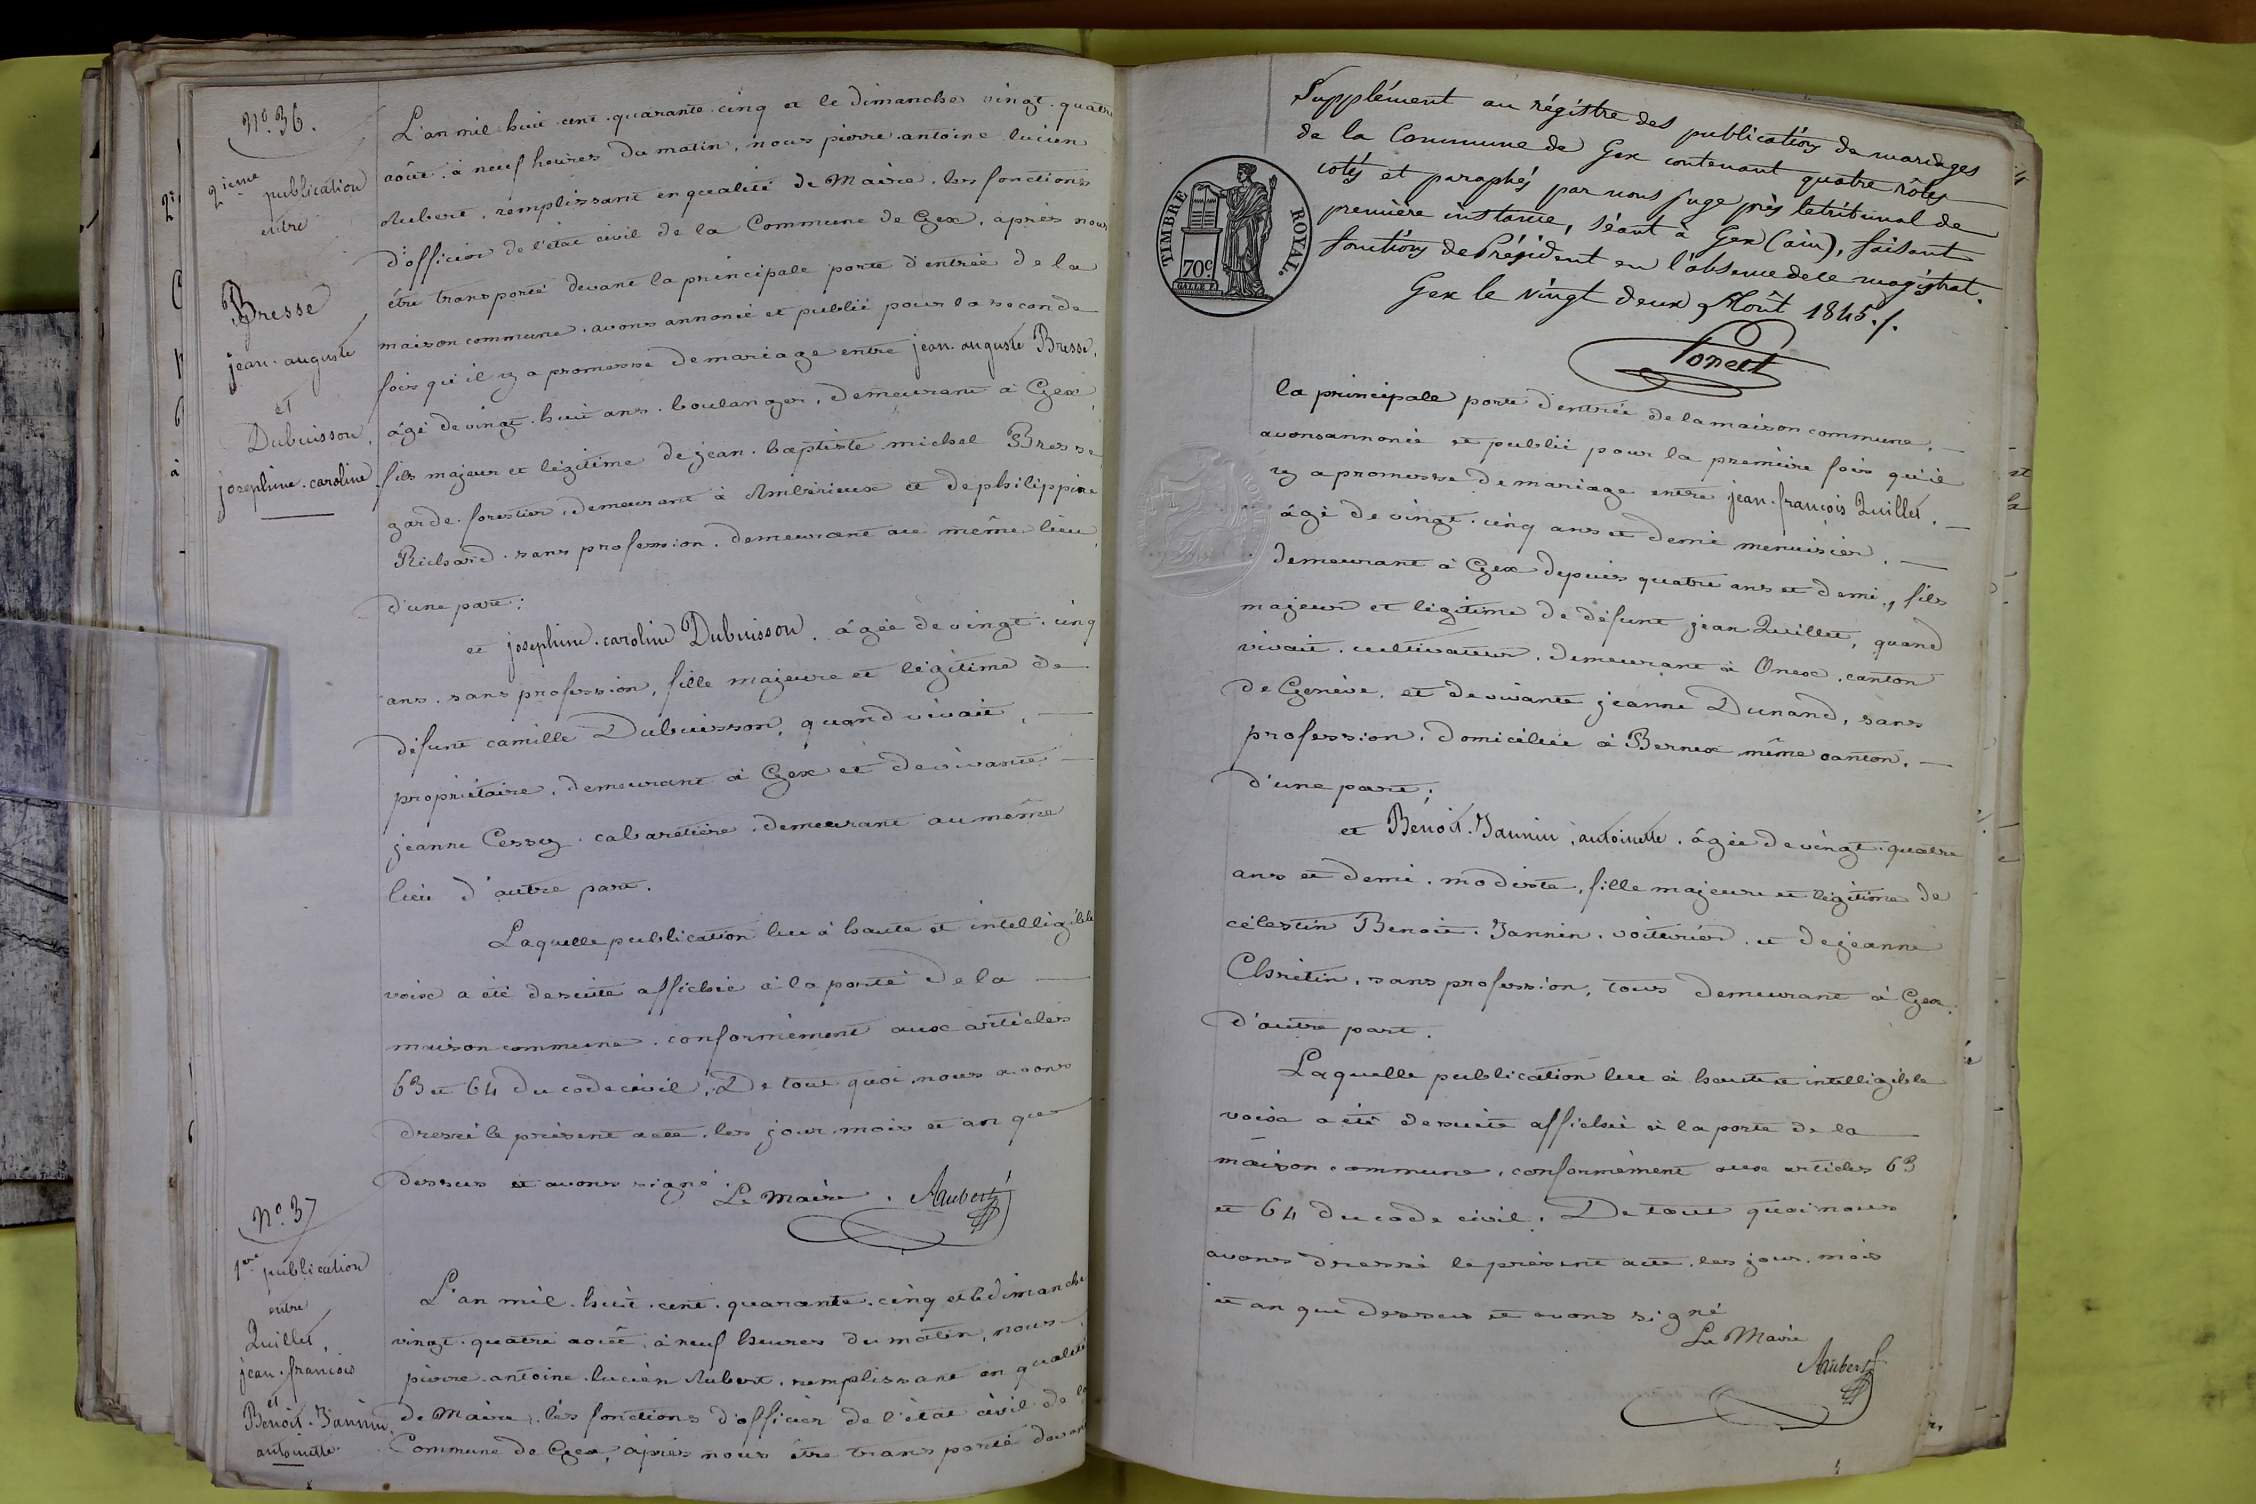 N.° 36.
2ième publication
entre
Bresse
jean-auguste
et
Dubuisson,
josephine-caroline
L'an mil huit cent quarante-cinq et le dimanche vingt-quatre
août, à neuf heures du matin, nous pierre-antoine-lucien
Aubert, remplissant en qualité de Maire, les fonctions
d'officier de l'état civil de la Commune de Gex, après nous
être transporté devant la principale porte d'entrée de la
maison commune, avons annoncé et publié pour la seconde
fois qu'il y a promesse de mariage entre jean-auguste Bresse,
âgé de vingt-huit ans, boulanger, demeurant à Gex,
fils majeur et légitime de jean-baptiste michel Bresse
garde-forestier, demeurant à Ambérieux et de philippine
Richard, sans profession, demeurant au même lieu,
d'une part;
et josephine-caroline Dubuisson, âgée de vingt-cinq
ans, sans profession, fille majeure et légitime de
défunt camille Dubuisson, quand vivait,
propriétaire, demeurant à Gex et de vivante
jeanne Cessy, cabaretière, demeurant au même
lieu d'autre part.
Laquelle publication lue à haute et intelligible
voix a été de suite affichée à la porte de la
maison commune, conformément aux articles
63 et 64 du code civil. De tout quoi, nous avons
dressé le présent acte, les jour, mois et an que
dessus et avons signé.
Le Maire. Aubert
N.° 37
1ère publication
entre
Quillet,
jean-francois
et
Benoit-Jannin,
antoinette
L'an mil-huit-cent-quarante-cinq et le dimanche
vingt-quatre août, à neuf heures du matin, nous
pierre-antoine-lucien Aubert, remplissant en qualité
de Maire, les fonctions d'officier de l'état civil de la
Commune de Gex, après nous être transporté devant
Supplément au régistre des publications de mariages
de la Commune de Gex contenant quatre rôles
cotés et paraphés par nous juge près le tribunal de
première instance, séant à Gex (ain), faisant
fonctions de Président en l'absence de ce magistrat.
Gex le vingt deux Août 1845./.
TIMBRE ROYAL.
70c.
la principale porte d'entrée de la maison commune,
avons annoncé et publié pour la première fois qu'il
y a promesse de mariage entre jean-françois Quillet,
âgé de vingt-cinq ans et demi menuisier,
demeurant à Gex depuis quatre ans et demi, fils
majeur et légitime de défunt jean Quillet, quand
vivait, cultivateur, demeurant à Onex, canton
de Genève, et de vivante jeanne Dunand, sans
profession, domiciliée à Bernex même canton,
d'une part;
et Benoit-Jannin, antoinette, âgée de vingt-quatre
ans et demi, modiste, fille majeure et légitime de
célestin Benoit-Jannin, voiturier, et de jeanne
Chrétin, sans profession, tous demeurant à Gex,
d'autre part.
Laquelle publication lue à haute et intelligible
voix a été de suite affichée à la porte de la
maison commune, conformément aux articles 63
et 64 du code civil. De tout quoi nous
avons dressé le présent acte, les jour, mois
et an que dessus et avons signé
Le Maire
Aubert